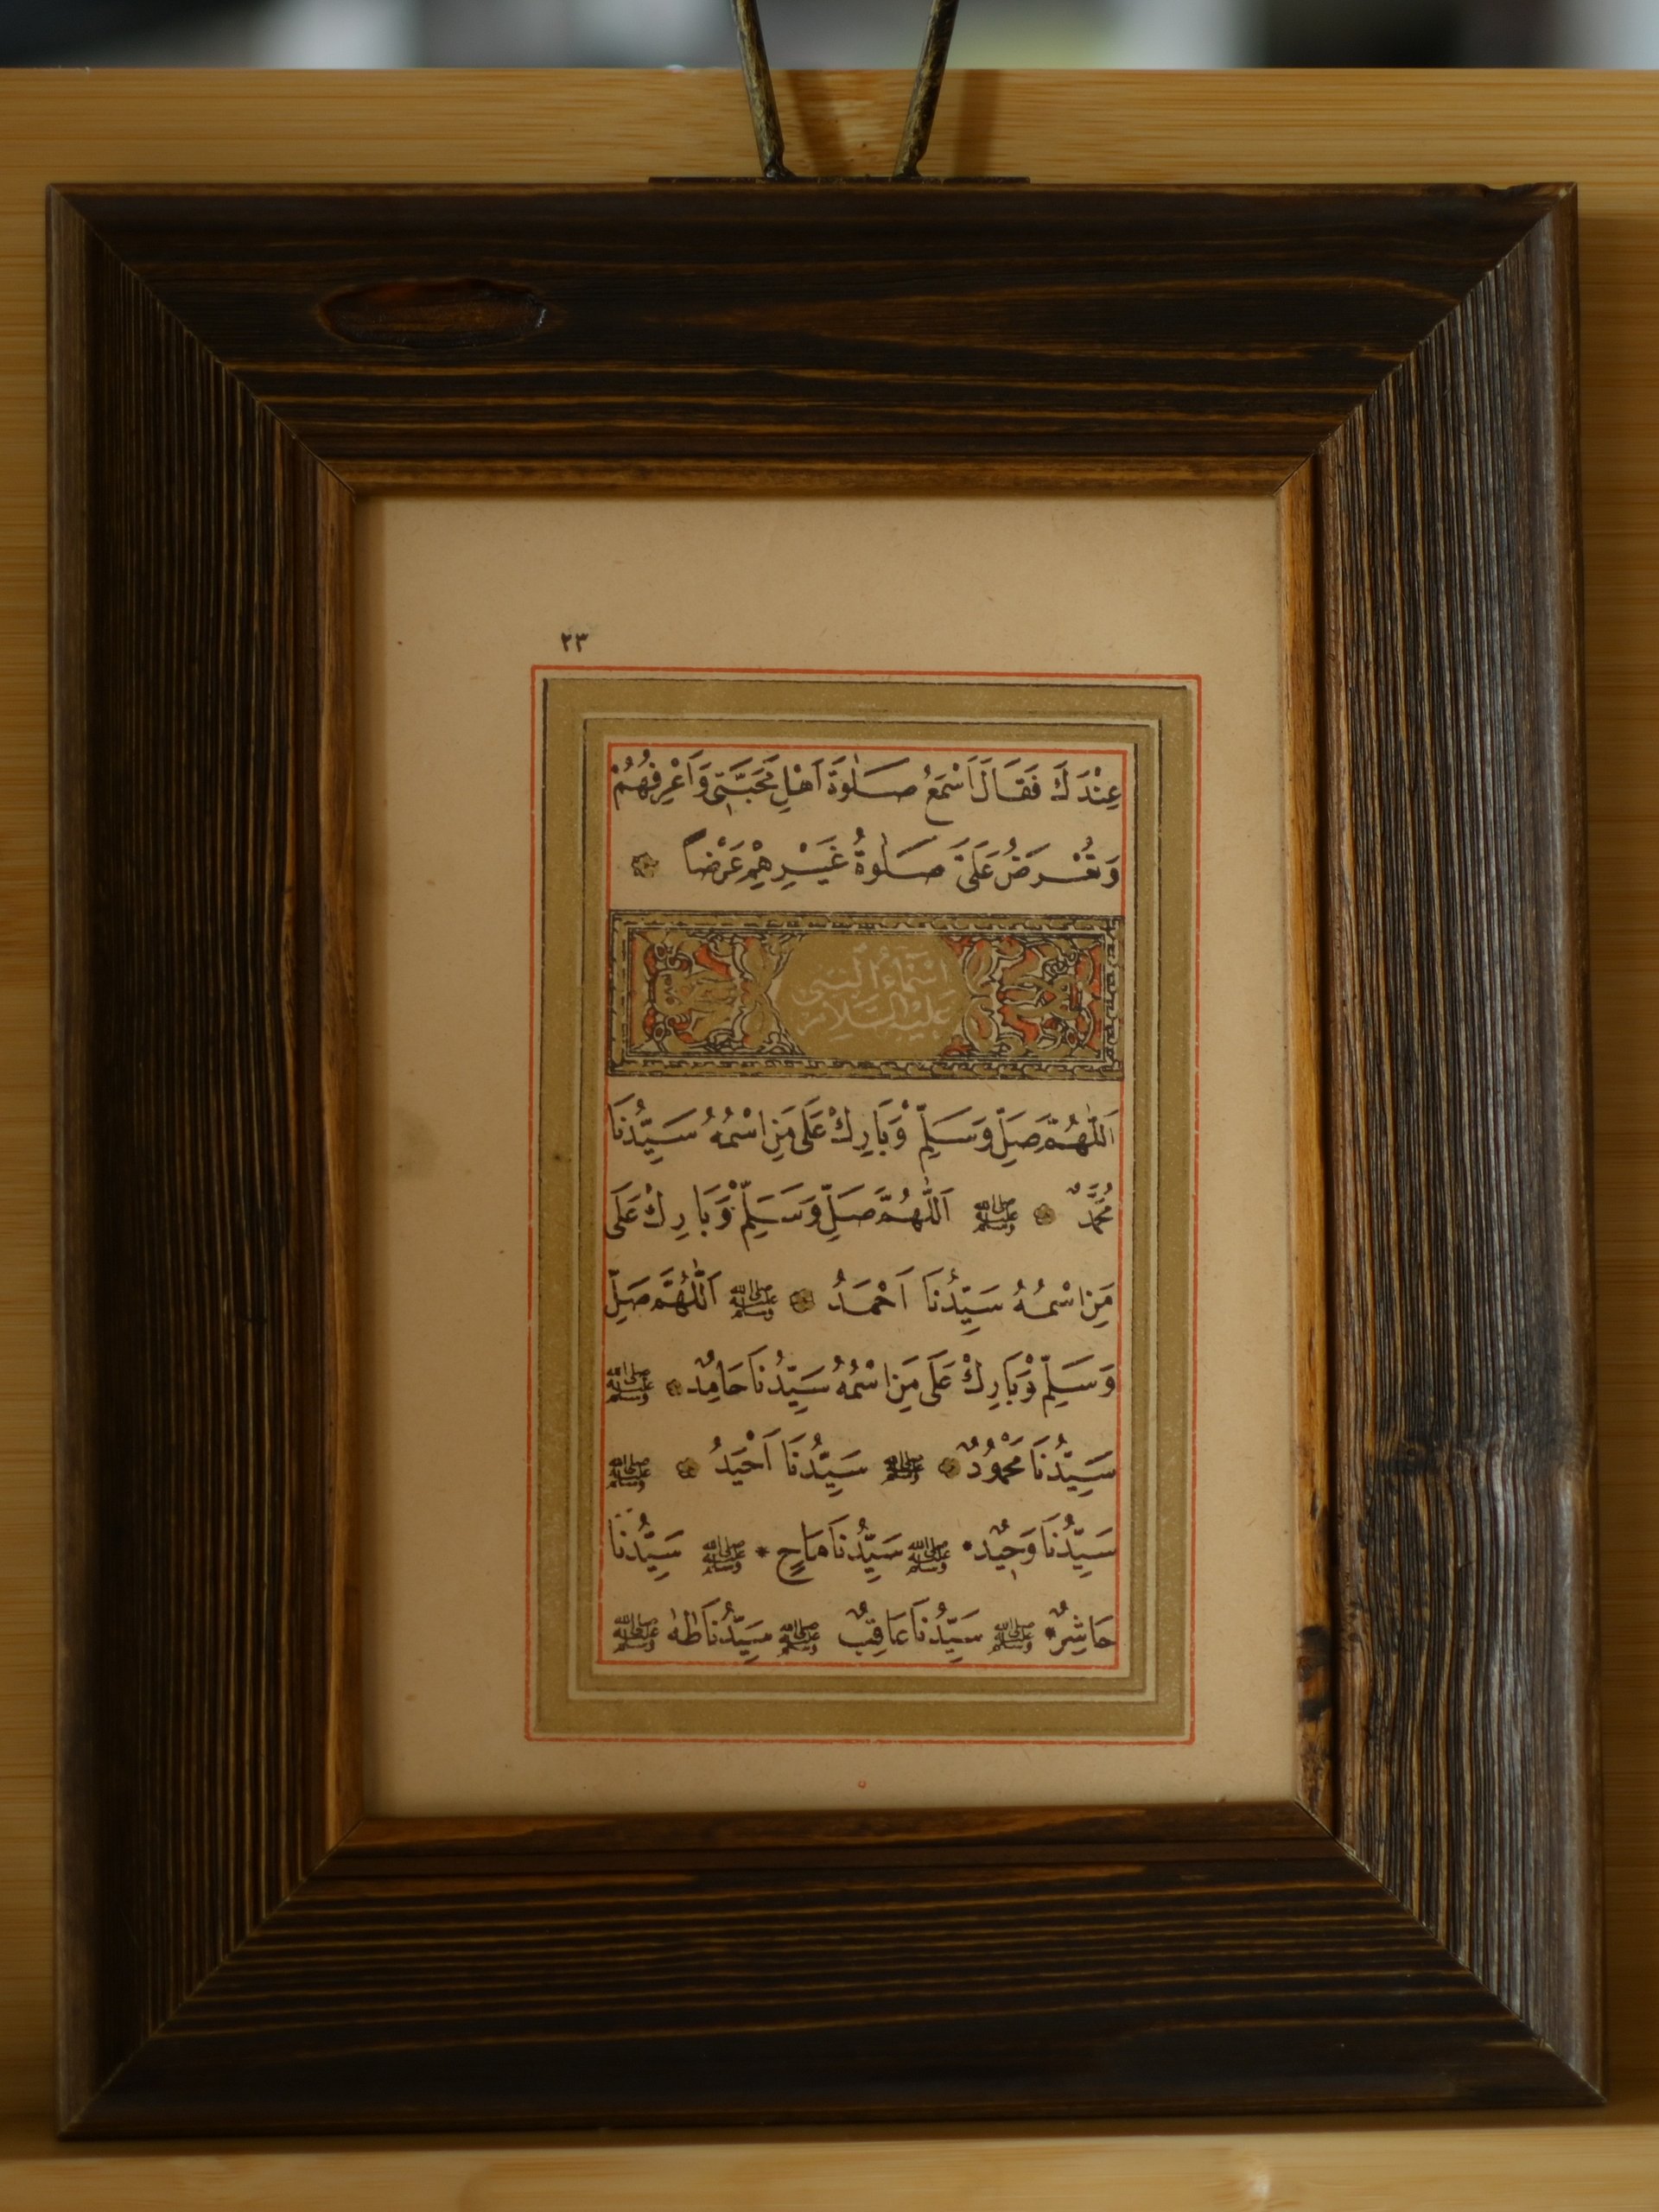 ٢٣
عِنْدَكَ فَقَالَ اَسْمَعُ صَلٰوةَ اَهْلِ مَحَبَّتٖى وَاَعْرِفُهُمْ
وَتُعْرَضُ عَلَىَّ صَلٰوةُ غَيْرِهِمْ عَرْضاً
اَسْمَاءُ النَّبِى
عَلَيْهِ السَّلَامْ
اَللّٰهُمَّ صَلِّ وَسَلِّمْ وَبَارِكْ عَلٰى مَنِ اسْمُهُ سَيِّدُنَا
مُحَمَّدٌ ﷺ اَللّٰهُمَّ صَلِّ وَسَلِّمْ وَبَارِكْ عَلٰى
مَنِ اسْمُهُ سَيِّدُنَا اَحْمَدُ ﷺ اَللّٰهُمَّ صَلِّ
وَسَلِّمْ وَبَارِكْ عَلٰى مَنِ اسْمُهُ سَيِّدُنَا حَامِدٌ ﷺ
سَيِّدُنَا مَحْمُودٌ ﷺ سَيِّدُنَا اَحْيَدُ ﷺ
سَيِّدُنَا وَحٖيدٌ ﷺ سَيِّدُنَا مَاحٍ * ﷺ سَيِّدُنَا
حَاشِرٌ * ﷺ سَيِّدُنَا عَاقِبٌ ﷺ سَيِّدُنَا طٰهٰ ﷺ